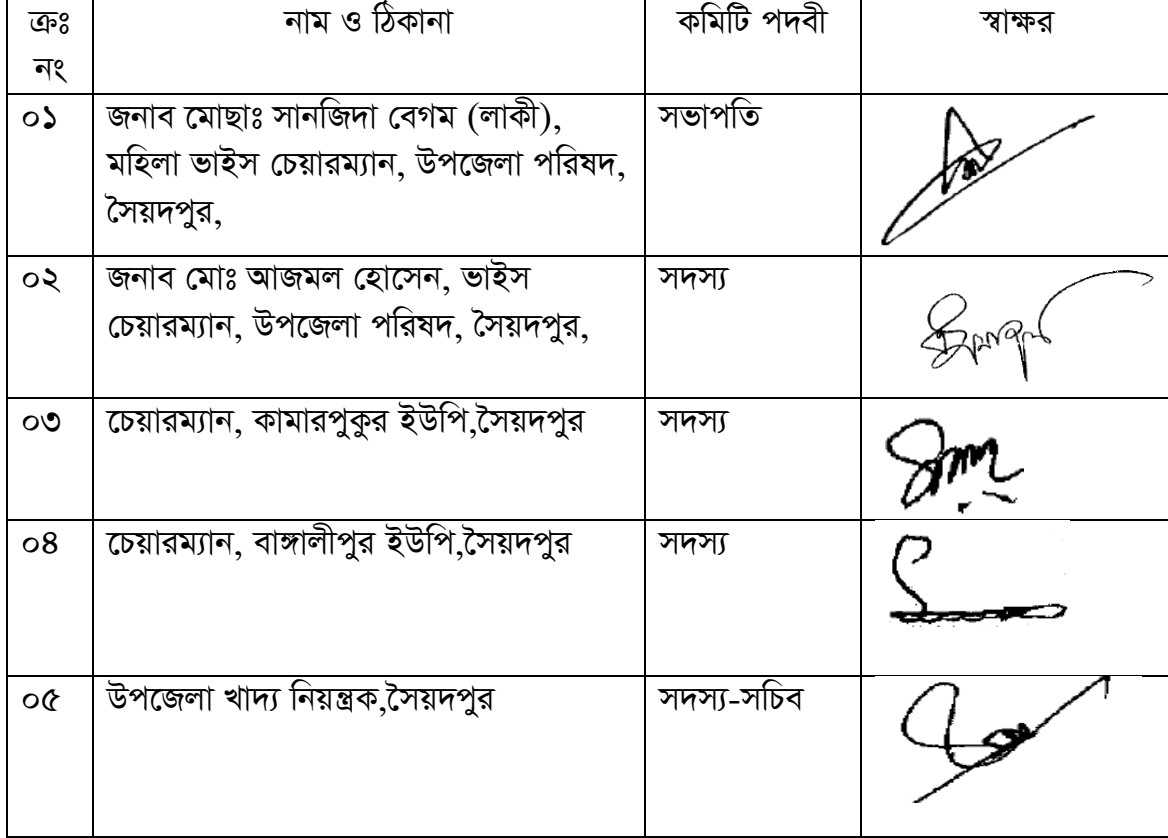 ক্রঃ নং নাম ও ঠিকানা কমিটি পদবী স্বাক্ষর
০১ জনাব মোছাঃ সানজিদা বেগম (লাকী), সভাপতি
মহিলা ভাইস চেয়ারম্যান, উপজেলা পরিষদ,
সৈয়দপুর,
০২ জনাব মোঃ আজমল হোসেন, ভাইস সদস্য
চেয়ারম্যান, উপজেলা পরিষদ, সৈয়দপুর,
০৩ চেয়ারম্যান, কামারপুকুর ইউপি,সৈয়দপুর সদস্য
০৪ চেয়ারম্যান, বাঙ্গালীপুর ইউপি,সৈয়দপুর সদস্য
০৫ উপজেলা খাদ্য নিয়ন্ত্রক,সৈয়দপুর সদস্য-সচিব